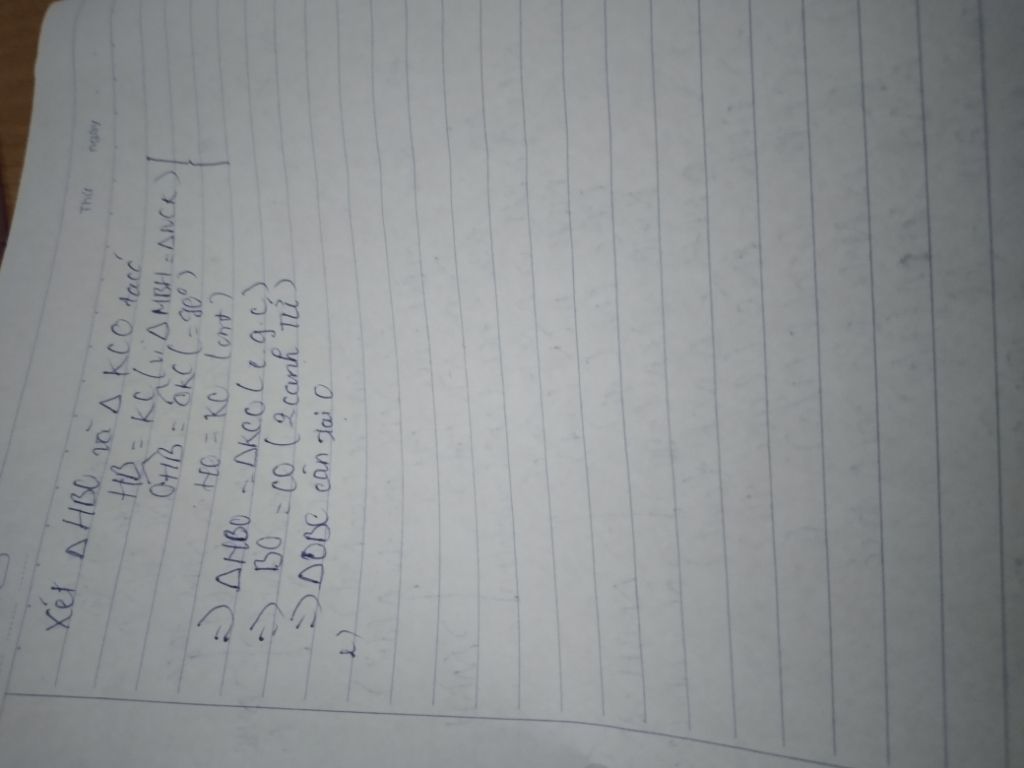 Thứ ngày
Xét Δ HBO và Δ KCO ta có
HB = KC (vì Δ MBH = Δ NCK)
OHB = OKC (= 90°)
HO = KO (cmt)
=) Δ HBO = Δ KCO (c g c)
=) BO = CO (2 cạnh TƯ)
=) Δ OBC cân tại O
2)